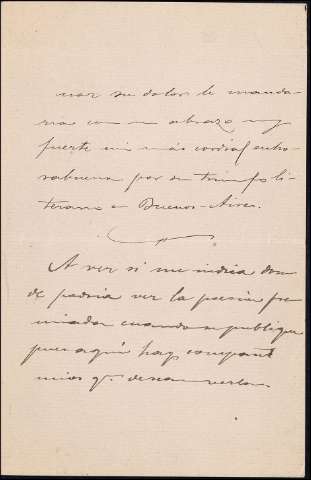 nar su dolor le manda-
ria con un abrazo muy
fuerte mi más cordial enho-
rabuena por su triunfo li-
terario en Buenos-Aires.
A ver si me indica don-
de podria ver la poesia pre-
miada cuando se publique
pues aquí hay compañ
mios q. desean verla